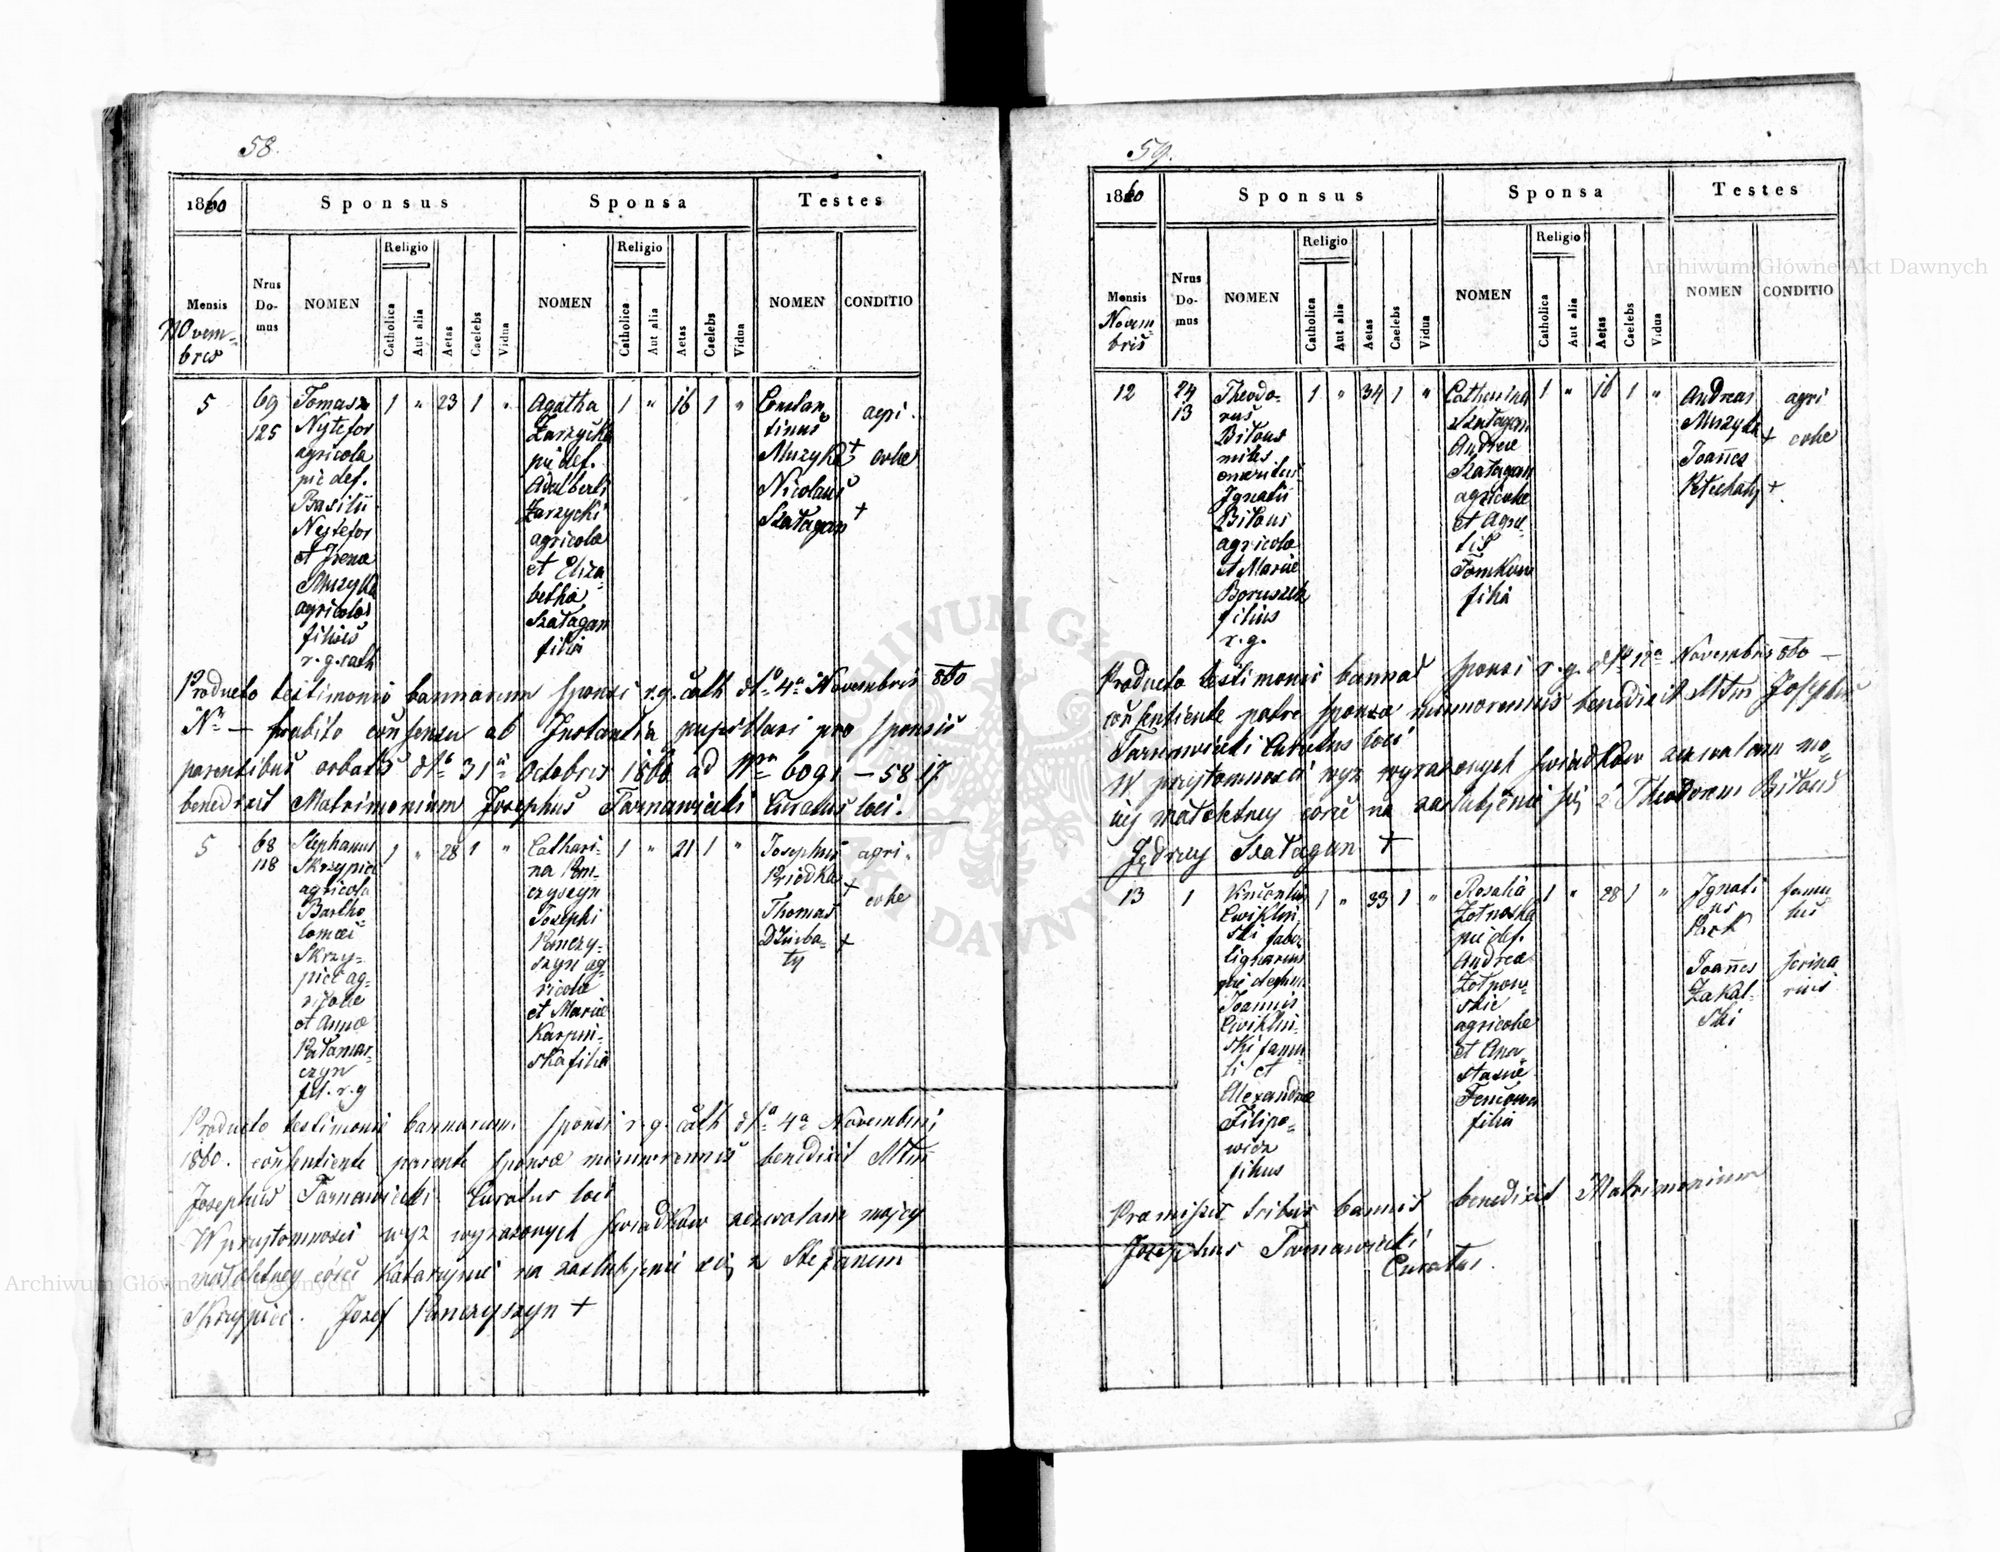 58.
1860
Sponsus
Sponsa
Testes
Mensis
Novem-
bris
Nrus
Do-
mus
NOMEN
Religio
Catholica
Aut alia
Aetas
Caelebs
Vidua
NOMEN
Religio
Catholica
Aut alia
Aetas
Caelebs
Vidua
NOMEN
CONDITIO
5
69
125
Tomasz
Nytefor
agricola
pie def.
Basilii
Nestefor
et Irenae
Muzyka
agricolar
filius
r. g. cath
1 " 23 1 "
Agatha
Zarzycka
pie def.
Adalberti
Zarzycki
agricolae
et Eliza-
betha
Szatagan
filia
1 " 16 1 "
Constan
tinus
Muzyka +
Nicolaus
Szatagan +
agri.
colae
Producto testimonio bannorum sponsi r. g. cath dto 4a Novembris 860
Nro — probito consensu ab Instantia pupillari pro sponsis
parentibus orbatis dto 31a Octobris 1860 ad Nrm 6091 — 5817
benedixit Matrimonium Josephus Tarnawiecki Curatus loci.
5
68
118
Stephanus
Skrzypiec
agricola
Bartho-
lomaei
Skrzy-
piec ag-
ricolae
et Annae
Patamar-
czyn
fil. r. g
1 " 28 1 "
Cathari-
na Pan-
czyszyn
Josephi
Panczy-
szyn ag-
ricolae
et Mariae
Karpin-
ska filia
1 " 21 1 "
Josephus
Priodka +
Thomas
Dziuba-
ty +
agri.
colae
Producto testimonio bannorum sponsi r. g. cath dto 4a Novembris
1860. consentiente parente sponsae minorennis benedixit Mtm
Josephus Tarnawiecki Curatus loci
W przytomnosci wyz wyrazonych swiadkow zezwalam mojey
maloletney corce Katarzynie na zaslubienie się z Stefanem
Skrzypiec. Jozef Panczyszyn +
59.
1860
Sponsus
Sponsa
Testes
Mensis
Novem
bris
Nrus
Do-
mus
NOMEN
Religio
Catholica
Aut alia
Aetas
Caelebs
Vidua
NOMEN
Religio
Catholica
Aut alia
Aetas
Caelebs
Vidua
NOMEN
CONDITIO
12
24
13
Theodo-
rus
Bitous
miles
emeritus
Ignatii
Bitous
agricolae
et Mariae
Boruszek
filius
r. g.
1 " 34 1 "
Catherina
Szatagan
Andreae
Szatagan
agricolae
et Agne-
tis
Tomkow
filia
1 " 16 1 "
Andreas
Muzyka +
Joannes
+
agri
colae
Producto testimonio bannor sponsi r. g. dto 12a Novembris 860 —
consentiente patre sponsae minorennis benedixit Mtm Josephus
Tarnawiecki Curatus loci
W przytomnosci wyz wyrazonych swiadkow zezwalam mo-
iey maloletney corce na zaslubienie się z Theodorem Bitous
Jędrzey Szatagan +
13
1
Vincentius
Cwiklin-
ski faber
lignarius
pie defunc
Joannis
Cwiklin-
ski famu-
li et
Alexandrae
Filipo-
wicz
filius
1 " 33 1 "
Rosalia
Zolnoska
pie def.
Andreae
Zolnow-
skie
agricolae
et Ana-
stasiae
Fencowa
filia
1 " 28 1 "
Ignati
us
Joannes
Zakal-
ski
famu-
lus
scrina
rius
Praemissis tribus bannis benedixit Matrimonium
Josephus Tarnawiecki
Curatus.
Archiwum Główne Akt Dawnych
Archiwum Główne Akt Dawnych
ARCHIWUM GŁÓWNE AKT DAWNYCH